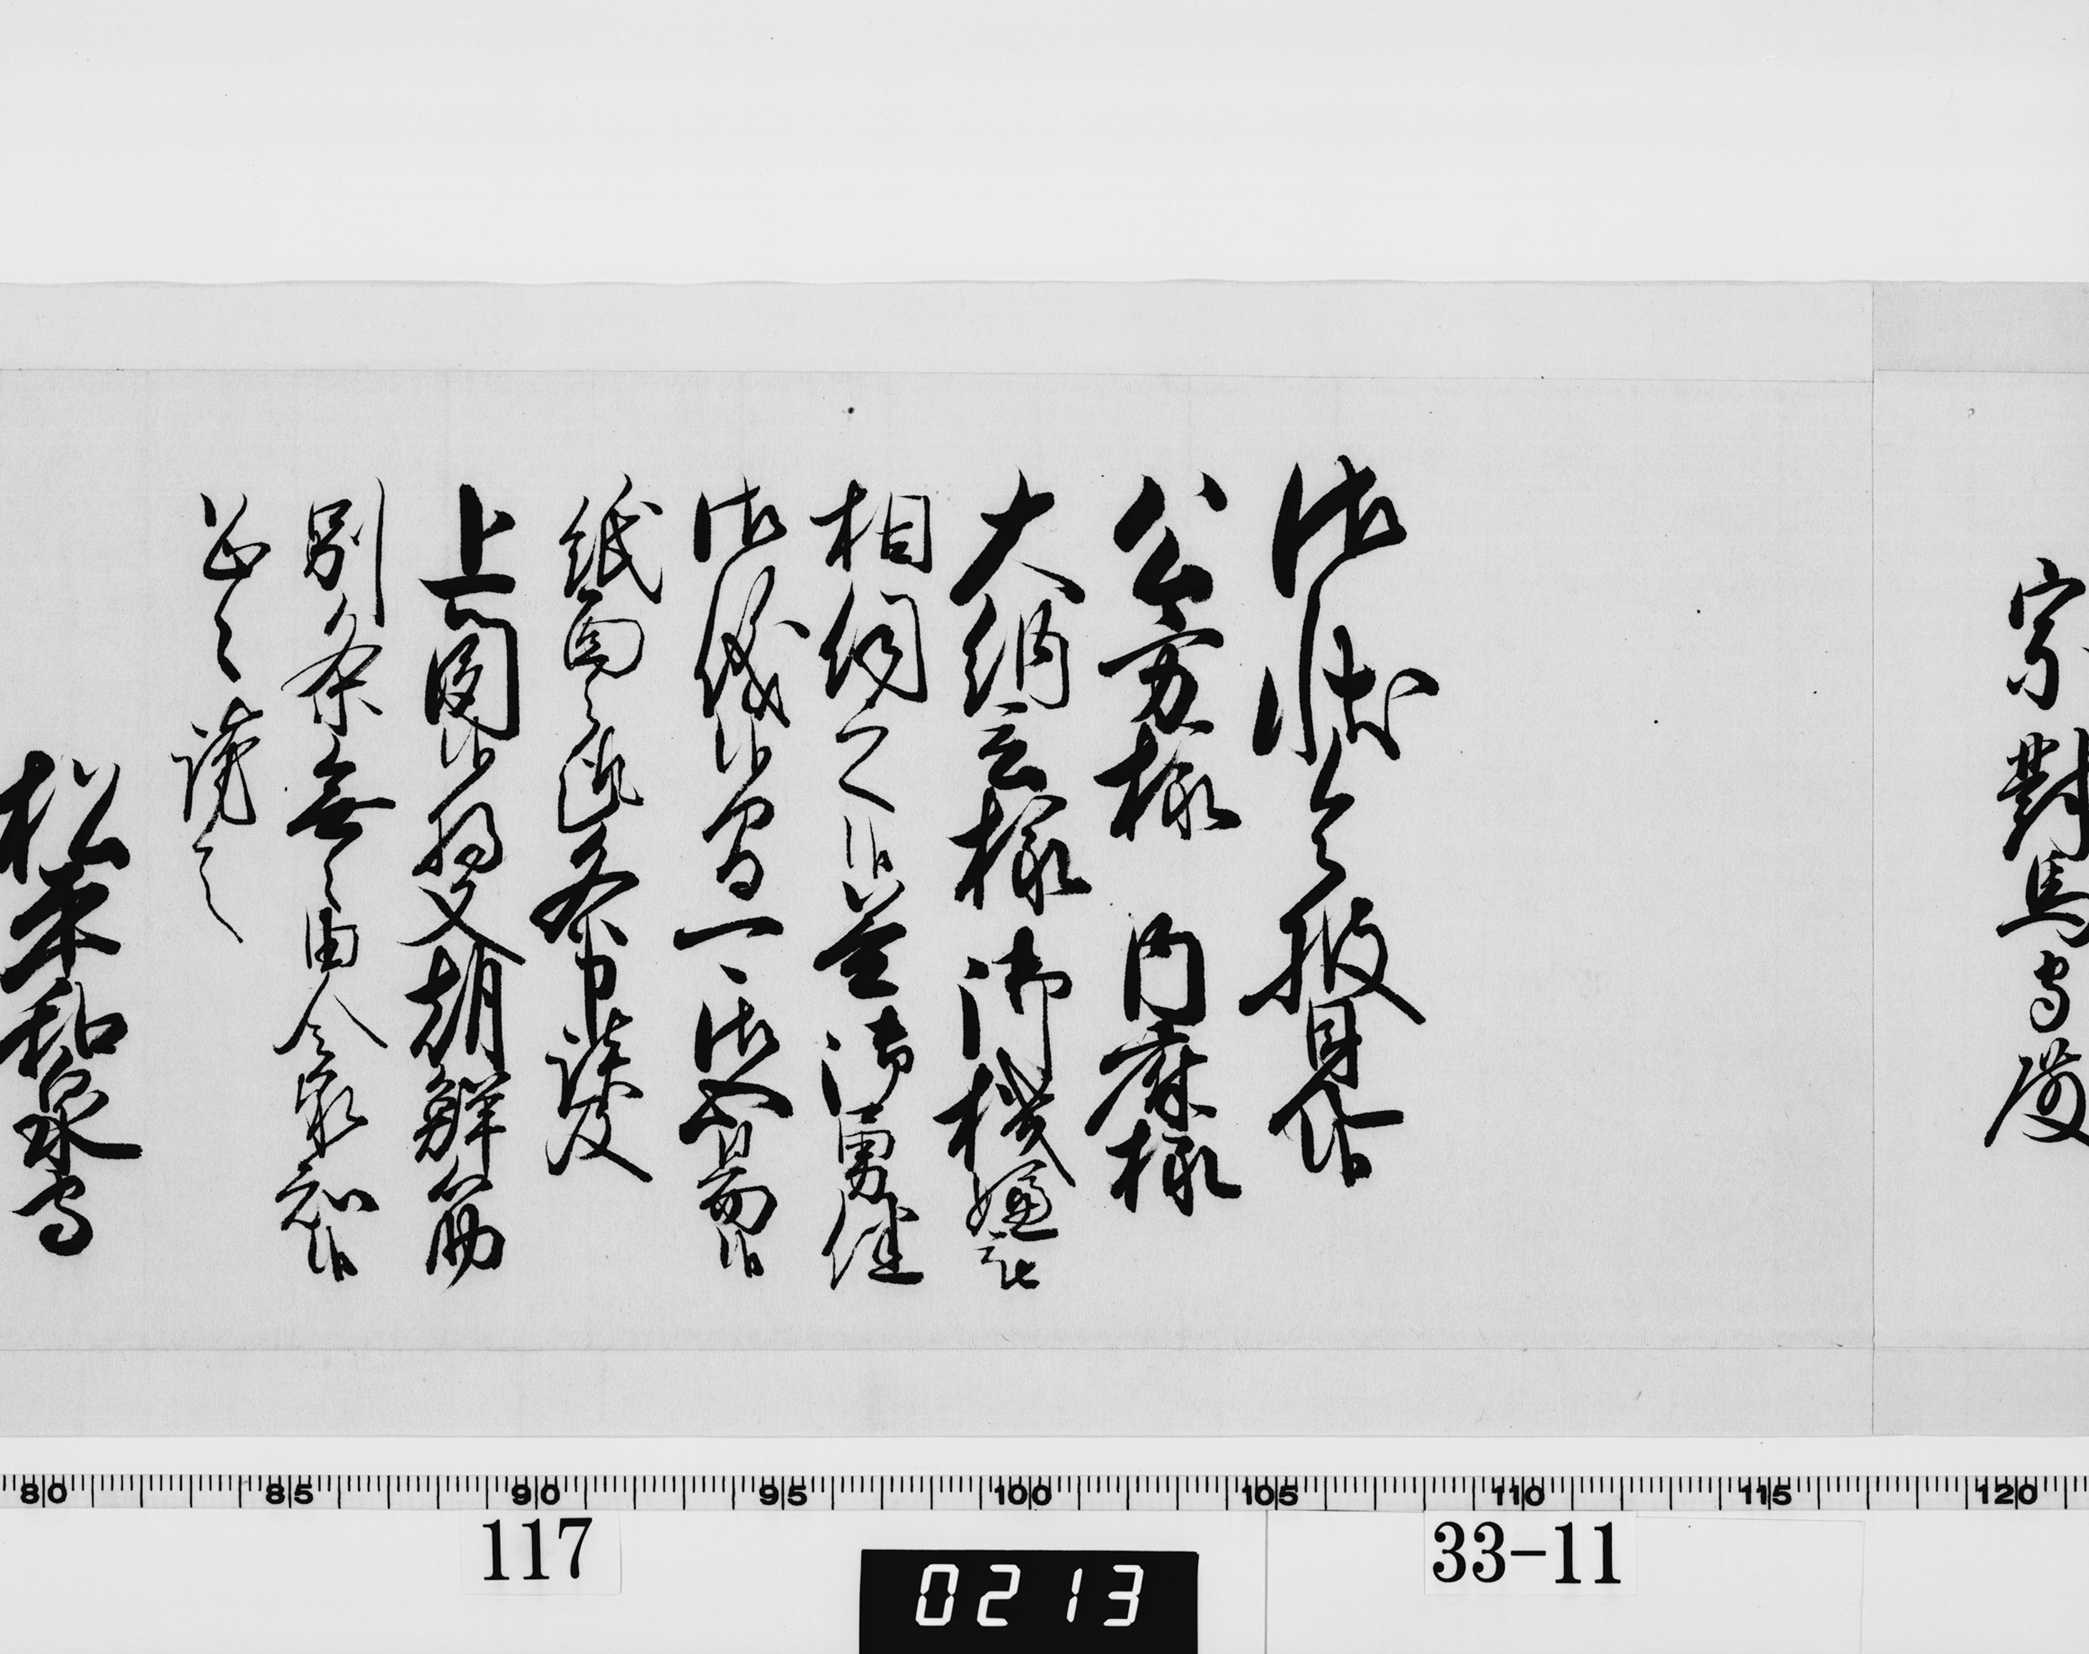 宗對馬守殿
御状令披見候
公方様 内府様
大納言様御機嫌
相伺之候益御勇健
御儀候間御心易候
紙面之趣各申談及
上聞候将又朝鮮筋
別条無之由令承知候
恐々謹言
松平和泉守
80 85 90 95 100 105 110 115 120
117
33-11
0213